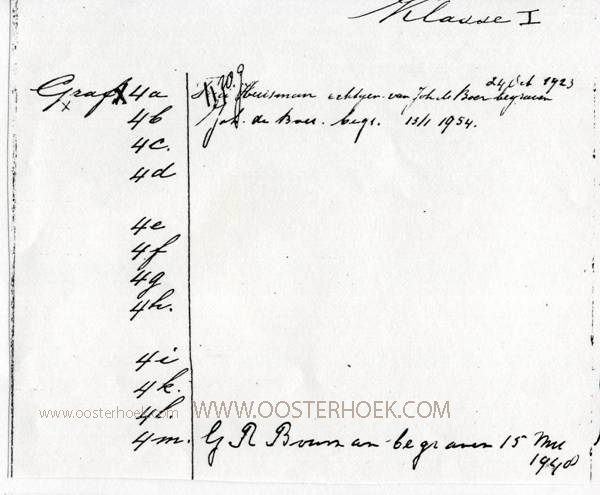 Klasse I
Graf 4a Huisman echtgen. van Joh. de Boer begraven 24 Oct 1923
4b Joh. de Boer. begr. 13/1 1954.
4c.
4d
4e
4f
4g
4h.
4i
4k.
4l.
www.oosterhoek.com WWW.OOSTERHOEK.COM
4m. G R Bouman begraven 15
1948